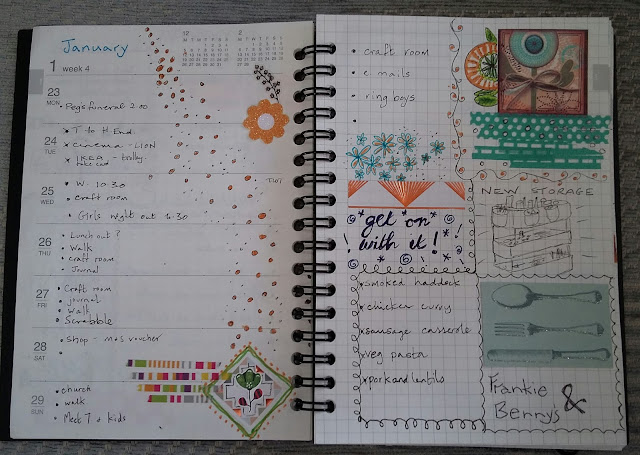 January
1 week 4
23
MON
Peg's funeral 2.00
24
TUE
T to H End.
cinema - LION
IKEA - trolley
take cad
25
WED
W. 10.30
craft room
Girls night out 10.30
26
THU
Lunch out ?
Walk
craft room
Journal
27
FRI
Craft room
journal
Walk
Scrabble
28
SAT
shop - m+s voucher
29
SUN
church
walk
Meck 7 + kids
craft room
e mails
ring boys
get on
with it!
smoked haddock
chicken curry
sausage casserole
veg pasta
pork and lentils
NEW STORAGE
Frankie
&
Berry's